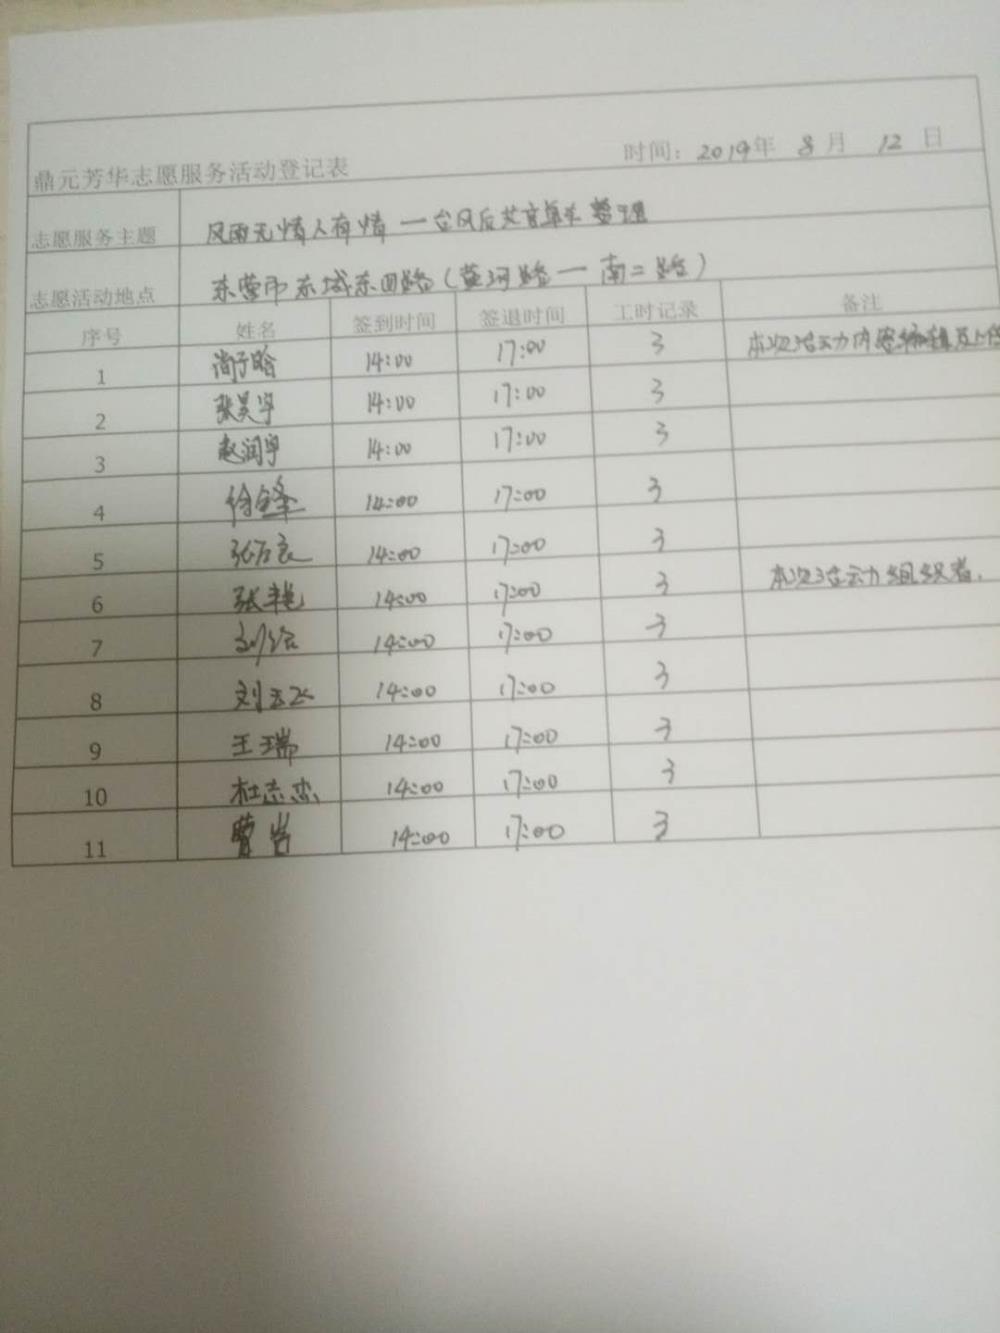 鼎元芳华志愿服务活动登记表 时间：2019年 8月 12日
志愿服务主题 风雨无情人有情一台风后共享单车整理
志愿活动地点 东营市东城东四路（黄河路一南二路）
序号 姓名 签到时间 签退时间 工时记录 备注
1 14:00 17:00 3 本次活动内容编辑及上传
2 张昊宇 14:00 17:00 3
3 赵润宇 14:00 17:00 3
4 徐金峰 14:00 17:00 3
5 张万良 14:00 17:00 3
6 张艳 14:00 17:00 3 本次活动组织者.
7 14:00 17:00 3
8 刘云飞 14:00 17:00 3
9 王瑞 14:00 17:00 3
10 杜志杰 14:00 17:00 3
11 曹岩 14:00 17:00 3